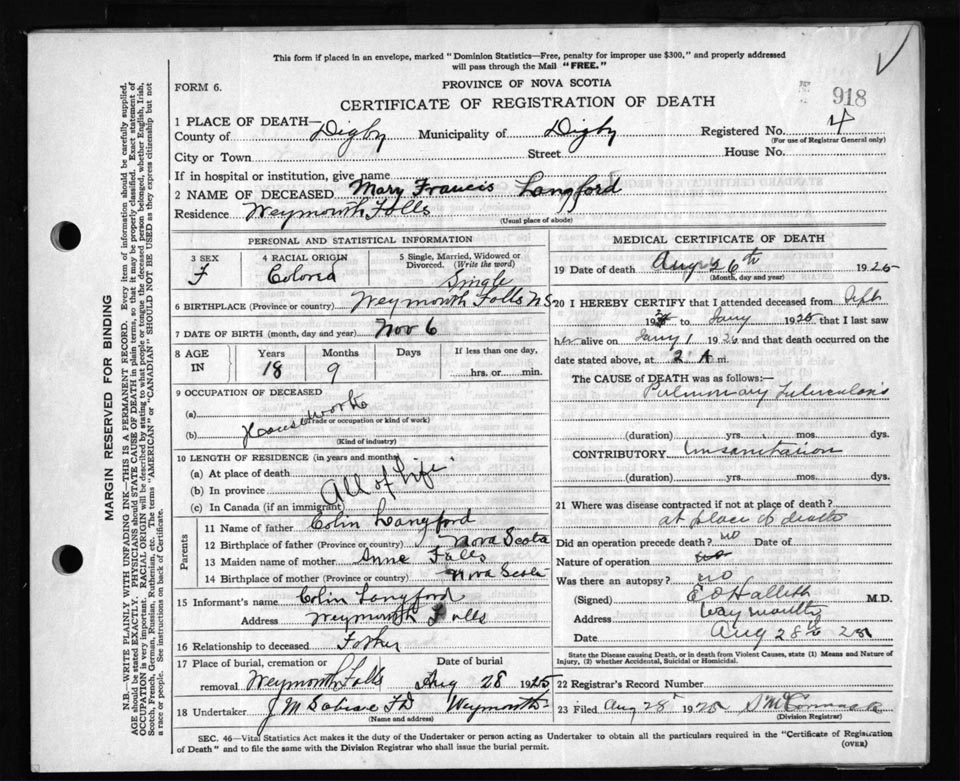 This form if placed in an envelope, marked "Dominion Statistics—Free, penalty for improper use $300," and properly addressed
will pass through the Mail "FREE."
FORM 6.
PROVINCE OF NOVA SCOTIA
CERTIFICATE OF REGISTRATION OF DEATH
918
1 PLACE OF DEATH—
County of Digby Municipality of Digby Registered No. 4
(For use of Registrar General only)
City or Town Street House No.
If in hospital or institution, give name
2 NAME OF DECEASED Mary Francis Langford
Residence Weymouth Falls
(Usual place of abode)
PERSONAL AND STATISTICAL INFORMATION
3 SEX F
4 RACIAL ORIGIN Colored
5 Single, Married, Widowed or Divorced. (Write the word) Single
6 BIRTHPLACE (Province or country) Weymouth Falls N S
7 DATE OF BIRTH (month, day and year) Nov 6
8 AGE IN Years Months Days If less than one day,
18 9 hrs. or min.
9 OCCUPATION OF DECEASED
(a) Housework
(Trade or occupation or kind of work)
(b)
(Kind of industry)
10 LENGTH OF RESIDENCE (in years and months)
(a) At place of death
(b) In province All of Life
(c) In Canada (if an immigrant)
Parents
11 Name of father Colin Langford
12 Birthplace of father (Province or country) Nova Scotia
13 Maiden name of mother Anne Falls
14 Birthplace of mother (Province or country) Nova Scotia
15 Informant's name Colin Langford
Address Weymouth Falls
16 Relationship to deceased Father
17 Place of burial, cremation or removal Weymouth Falls Date of burial Aug 28 1925
18 Undertaker J M Weymouth
(Name and address)
MEDICAL CERTIFICATE OF DEATH
19 Date of death Aug 26th 1925
(Month, day and year)
20 I HEREBY CERTIFY that I attended deceased from Sept
192 to Jany 1925 that I last saw
her alive on Jany 1 192 and that death occurred on the
date stated above, at 2 A m.
The CAUSE OF DEATH was as follows:—
Pulmonary Tuberculosis
(duration) yrs. mos. dys.
CONTRIBUTORY Unsanitation
(duration) yrs. mos. dys.
21 Where was disease contracted if not at place of death?
at place of death
Did an operation precede death? no Date of
Nature of operation
Was there an autopsy? no
(Signed) M.D.
Address Weymouth
Date Aug 28
State the Disease causing Death, or in death from Violent Causes, state (1) Means and Nature of
Injury, (2) whether Accidental, Suicidal or Homicidal.
22 Registrar's Record Number
23 Filed Aug 28 1925
(Division Registrar)
SEC. 46—Vital Statistics Act makes it the duty of the Undertaker or person acting as Undertaker to obtain all the particulars required in the "Certificate of Registration
of Death" and to file the same with the Division Registrar who shall issue the burial permit.
(OVER)
MARGIN RESERVED FOR BINDING
N.B.—WRITE PLAINLY WITH UNFADING INK—THIS IS A PERMANENT RECORD. Every item of information should be carefully supplied.
AGE should be stated EXACTLY. PHYSICIANS should STATE CAUSE OF DEATH in plain terms, so that it may be properly classified. Exact statement of
OCCUPATION is very important. RACIAL ORIGIN will be described by stating to what people or tongue the deceased person belonged, whether English, Irish,
Scotch, French, German, Russian, Ruthenian, etc. The terms "AMERICAN" or "CANADIAN" SHOULD NOT BE USED as they express citizenship but not
a race or people. See instructions on back of Certificate.